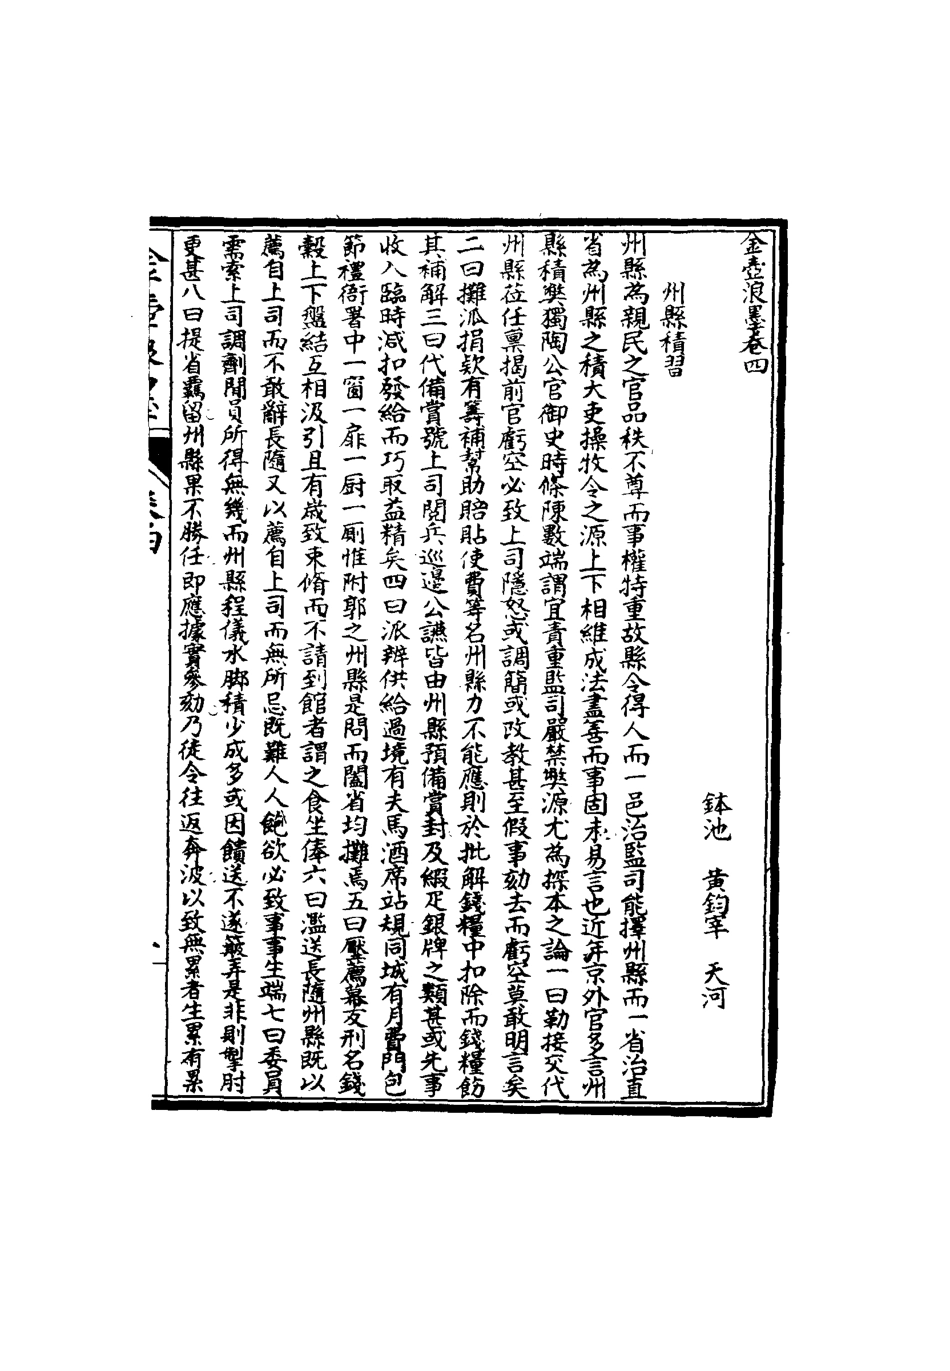 金壺浪墨卷四
鉢池 黄鈞宰 天河
州縣積習
州縣為親民之官品秩不尊而事權特重故縣令得人而一邑治監司能擇州縣而一省治直
省為州縣之積大吏操牧令之源上下相維成法盡善而事固未易言也近年京外官多言州
縣積獘獨陶公官御史時條陳數端謂宜責重監司嚴禁獘源尤為探本之論一曰勒接交代
州縣莅任稟揭前官虧空必致上司隱怒或調簡或改教甚至假事劾去而虧空莫敢明言矣
二曰攤派捐欵有籌補幫助賠貼使費等名州縣力不能應則於批解錢糧中扣除而錢糧飭
其補解三曰代備賞號上司閱兵巡邊公讌皆由州縣預備賞封及緞疋銀牌之類甚或先事
收入臨時減扣發給而巧取益精矣四曰派辦供給過境有夫馬酒席站規同城有月費門包
節禮衙署中一窗一扉一厨一厠惟附郭之州縣是問而闔省均攤焉五曰壓薦幕友刑名錢
穀上下盤結互相汲引且有歲致束脩而不請到館者謂之食坐俸六曰濫送長隨州縣既以
薦自上司而不敢辭長隨又以薦自上司而無所忌既難人人飽欲必致事事生端七曰委員
需索上司調劑閒員所得無幾而州縣程儀水脚積少成多或因饋送不遂簸弄是非則掣肘
更甚八曰提省羈留州縣果不勝任即應據實參劾乃徒令往返奔波以致無累者生累有累
金壺浪墨 卷四 一